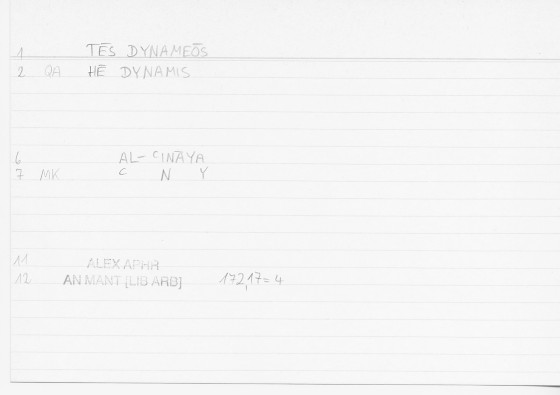 1 TĒS DYNAMEŌS
2 QA HĒ DYNAMIS
6 AL-ʿINĀYA
7 MK ʿ N Y
11 ALEX APHR
12 AN MANT [LIB ARB] 172,17=4